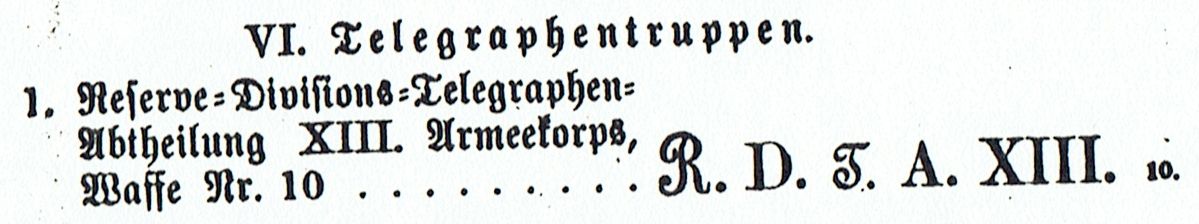 VI. Telegraphentruppen.
1. Reserve=Divisions=Telegraphen=
Abtheilung XIII. Armeekorps,
Waffe Nr. 10 . . . . . . . . . R. D. T. A. XIII. 10.